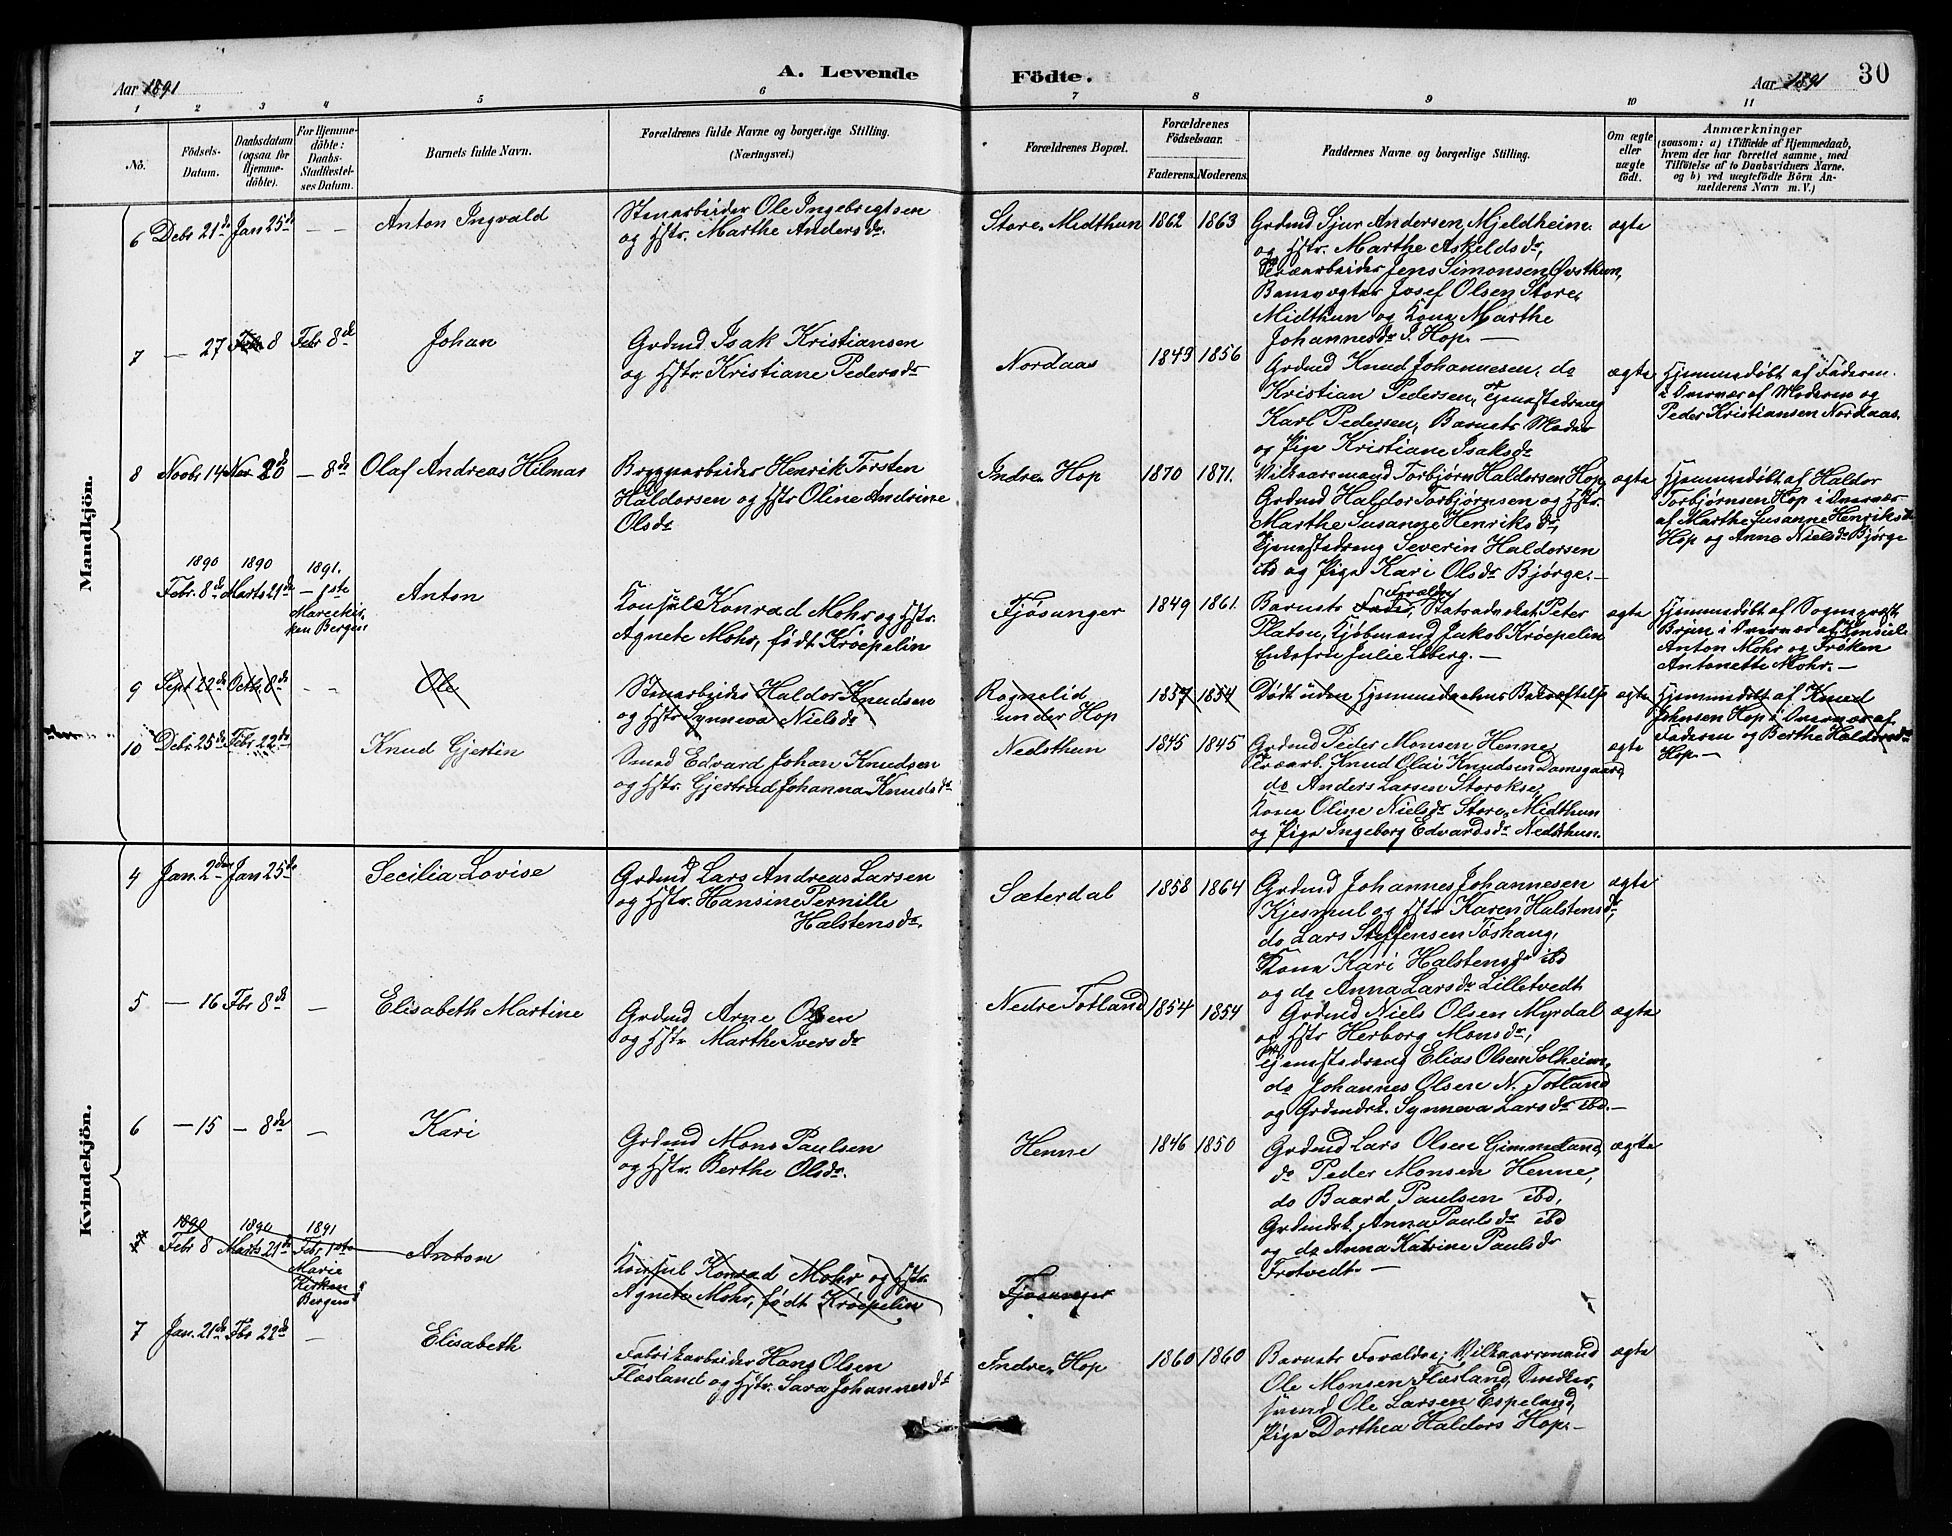 Aar 1891
A. Levende Födte.
Aar 1891
30
1 2 3 4 5 6 7 8 9 10 11
No.
Födsels-
Datum.
Daabsdatum
(ogsaa for
Hjemme-
döbte).
For Hjemme-
döbte:
Daabs-
Stadfæstel-
ses Datum.
Barnets fulde Navn.
Forældrenes fulde Navne og borgerlige Stilling.
(Næringsvei.)
Forældrenes Bopæl.
Forældrenes
Födselsaar.
Faderens. Moderens.
Faddernes Navne og borgerlige Stilling.
Om ægte
eller
uægte
födt.
Anmærkninger
(saasom: a) i Tilfælde af Hjemmedaab,
hvem der har forrettet samme, med
Tilföielse af to Daabsvidners Navne,
og b) ved uægtefödte Börn An-
melderens Navn m. V.)
Mandkjön.
6 Debr 21de Jan 25de — — Anton Ingvald
Stenarbeider Ole Ingebrigtsen
og Hstr. Marthe Andersdr.
Store Midthun 1862 1863
Grdmd Sjur Andersen Mjeldheim
og Hstr. Marthe Askeldsdr,
Træarbeider Jens Simonsen Øvsthun,
Banevogter Josef Olsen Store
Midthun og Kone Marthe
Johannesdr I. Hop. —
ægte
7 — 27 Feb 8 Febr 8de Johan
Grdmd Isak Kristiansen
og Hstr. Kristiane Pedersdr
Nordaas 1849 1856
Grdmd Knud Johannesen, do
Kristian Pedersen, Tjenestedreng
Karl Pedersen, Barnets Moder
og Pige Kristiane Isaksdr
ægte
Hjemmedøbt af Faderen
i Overvær af Moderen og
Peder Kristiansen Nordaas.
8 Novbr 14 Nov 20 — 8de Olaf Andreas Hilmar
Bryggearbeider Henrik Torsten
Haldorsen og Hstr Oline Andrine
Olsdr
Indre Hop 1870 1871.
Vilkaarsmand Torbjørn Haldorsen Hop,
Grdmd Haldor Torbjørnsen og Hstr.
Marthe Susanne Henriksdr,
Tjenestedreng Severin Haldorsen
ibd og Pige Kari Olsdr Bjørge. —
ægte
Hjemmedøbt af Haldor
Torbjørnsen Hop i Overvær
af Marthe Susanne Henriksdr
Hop og Anne Nielsdr Bjørge
1890 1890 1891.
Febr. 8de Marts 21de — 1ste Anton
Mariekir-
ken Bergen
Konsul Konrad Mohr og Hstr.
Agnete Mohr, født Krøepelin
Fjøsanger 1849 1861.
Barnets Forældre, Statsadvokat Peter
Platou, Kjøbmand Jakob Krøepelin
Enkefru Julie
ægte
Hjemmedøbt af Sogneprest
Brun i Overvær af Konsul
Anton Mohr og Frøken
Antonette Mohr. —
9 Sept 22de Octb. 8de — — Ole
Stenarbeider Haldor Knudsen
og Hstr Synneva Nielsdr
Rognelid
under Hop
1857 1854
Dødt uden Hjemmedaabens Bekræftelse
ægte
Hjemmedøbt af Knud
Johnsen Hop i Overvær af
Faderen og Berthe Haldorsdr
Hop. —
10 Debr 25de Febr 22de Knud Gjertin
Smed Edvard Johan Knudsen
og Hstr. Gjertrud Johanna Knudsdr
Nedsthun 1845 1845
Grdmd Peder Monsen Henne,
Træarb. Knud Olai Knudsen Damsgaard,
do Anders Larsen Storokse,
Kone Oline Nielsdr Store Midthun
og Pige Ingeborg Edvardsdr Nedsthun.
ægte
Kvindekjön.
4 Jan. 2den Jan 25de Secilia Lovise
Grdmd Lars Andreas Larsen
og Hstr. Hansine Pernille
Halstensdr.
Sæterdal 1858 1864
Grdmd Johannes Johannesen
Kjesmul og Hstr Karen Halstensdr
do Lars Steffensen Tøshaug,
Kone Kari Halstensdr ibd
og do Anna Larsdr Lilletvedt
ægte
5 — 16 Fbr 8de — Elisabeth Martine
Grdmd Arne Olsen
og Hstr Marthe Iversdr
Nedre Totland 1854 1854
Grdmd Niels Olsen Myrdal
og Hstr Herborg Monsdr,
Tjenestedreng Elias Olsen Solheim,
do Johannes Olsen N. Totland
og Grdmdsk. Synneva Larsdr ibd. —
ægte
6 — 15 — 8de — Kari
Grdmd Mons Paulsen
og Hstr. Berthe Olsdr.
Henne 1846 1850
Grdmd Lars Olsen Gimmeland,
do Peder Monsen Henne,
do Baard Paulsen ibd,
Grdmdsk. Anna Paulsdr ibd
og do Anna Katrine Paulsdr
Frotvedt —
ægte
1890 1890 1891
7 Febr 8 Marts 21de Febr 1ste Anton
Marie
Kirken
Bergen
Konsul Konrad Mohr og Hstr.
Agnete Mohr, født Krøepelin
Fjøsanger
7 Jan. 21de Fbr 22de — Elisabeth
Fabrikarbeider Hans Olsen
Flæsland og Hstr. Sara Johannesdr
Indre Hop 1860 1860
Barnets Forældre, Vilkaarsmand
Ole Monsen Flæsland, Snedker-
svend Ole Larsen Espeland,
Pige Dorthea Haldors Hop. —
ægte